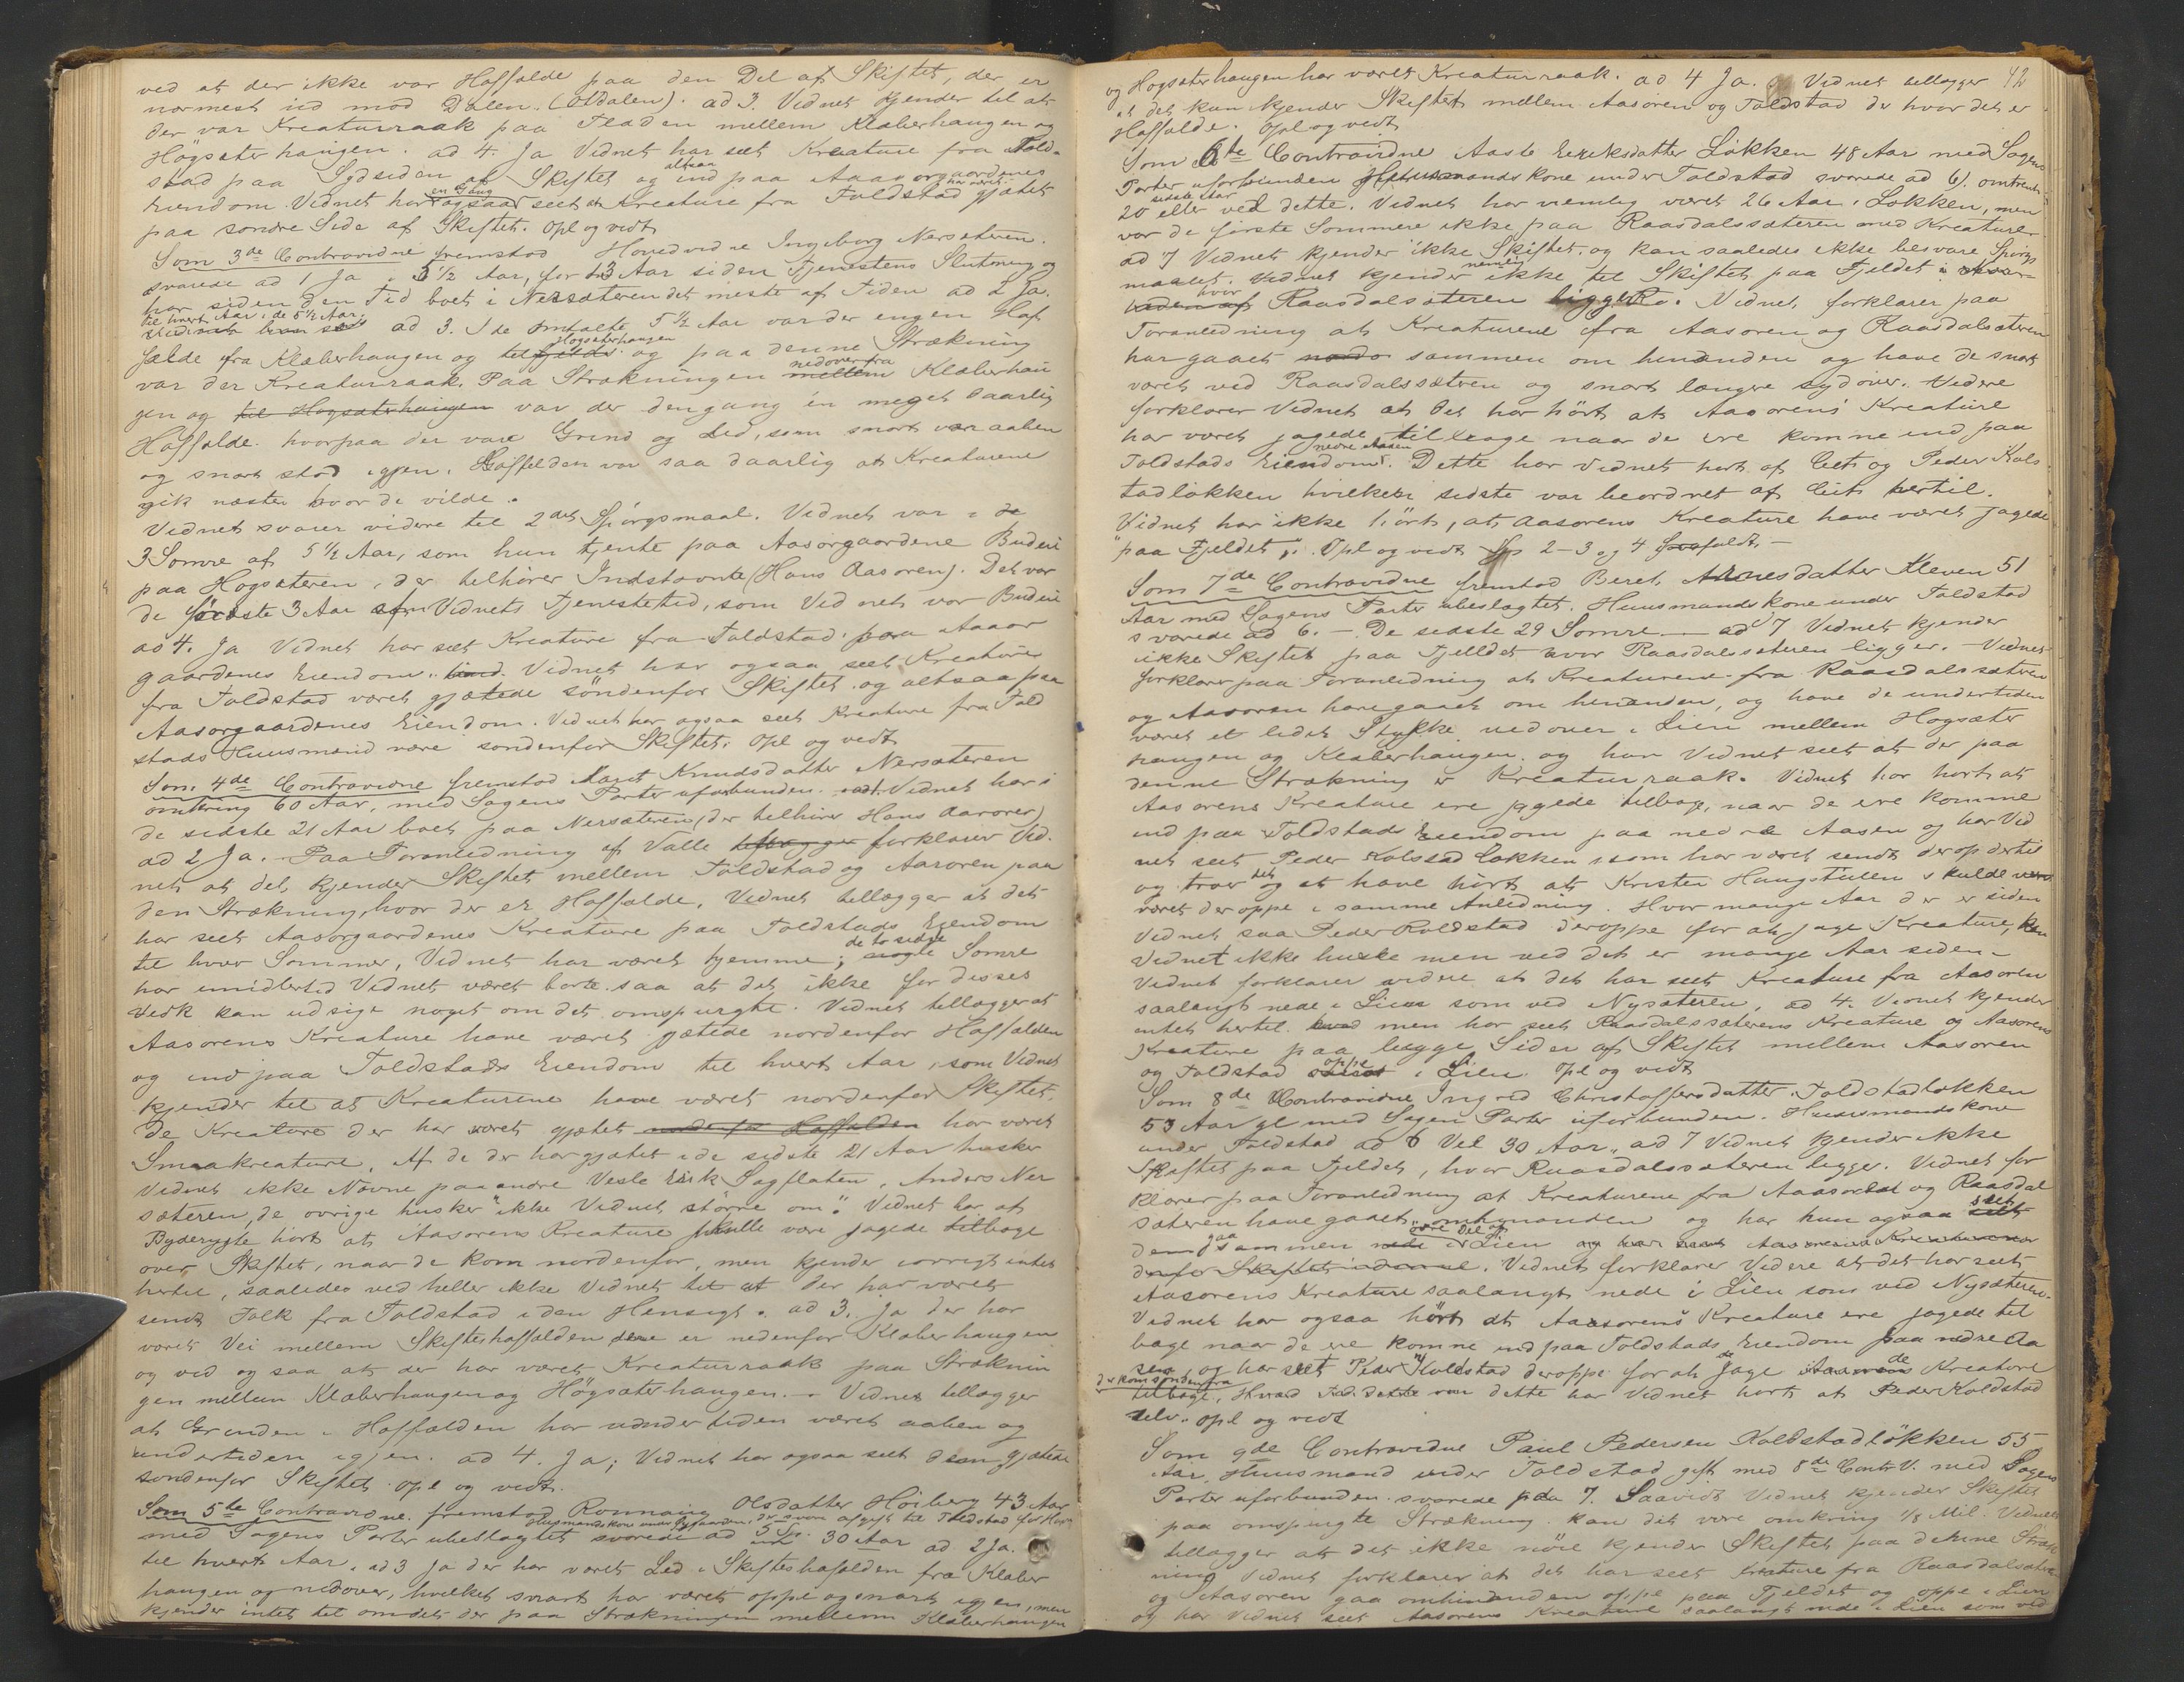 ved at der ikke var Haffalde paa den Del af Skiftet, der er
nærmest ind mod Dalen. (Otdalen). ad 3. Vidnet kjender til at
der var Kreaturraak paa Fladen mellem Klæberhaugen og
Högsæterhaugen. ad 4. Ja Vidnet har seet Kreature fra Told-
stad paa Sydsiden af Skiftet og altsaa ind paa Aasorgaardenes
Eiendom. Vidnet har en Gang ogsaa seet at Kreature fra Toldstad har været gjætet
paa søndre Side af Skiftet. Opl og vedt
Som 3de Contravidne fremstod Hovedvidne Ingeborg Nersæteren.
svarede ad 1 Ja i 5 1/2 Aar, for 13 Aar siden Tjenestens Slutning og
har siden den Tid boet i Nersæteren det meste af Tiden ad 2 Ja.
til hvert Aar i de 5 1/2 Aar.
ad 3. I de omtalte 5 1/2 Aar var der engen Haf
falde fra Klæberhaugen og til Høgsæterhaugen og paa denne Strækning
var der Kreaturraak. Paa Strækningen nedover fra Klæberhau
gen og til Høgsæterhaugen var der dengang en meget daarlig
Haffalde hvorpaa der vare Grind og Led, som snart var aaben
og snart stod igjen. Haffalden var saa daarlig at Kreaturene
gik næsten hvor de vilde.
Vidnet svarer videre til 2det Spörgsmaal. Vidnet var i de
3 Somre af 5 1/2 Aar, som hun tjente paa Aasorgaardene Budeie
paa Høgsæteren, der tilhører Indstævnte (Hans Aasoren). Det var
de förste 3 Aar af Vidnets Tjenestetid, som Vidnet var Budeie
ad 4. Ja Vidnet har seet Kreature fra Toldstad paa Aasor
gaardenes Eiendom. Vidnet har ogsaa seet Kreature
fra Toldstad været gjætede söndenfor Skiftet og altsaa paa
Aasorgaardenes Eiendom. Vidnet har ogsaa seet Kreature fra Told
stads Huusmænd være søndenfor Skiftet. Opl og vedt
Som 4de Contravidne fremstod Marit Knudsdatter Nersæteren
omkring 60 Aar, med Sagens Parter uforbunden. Vidnet har i
de sidste 21 Aar boet paa Nersæteren (der tilhører Hans Aasoren)
ad 2 Ja. Paa Foranledning af Valle forklarer Vid-
net at det kjender Skiftet mellem Toldstad og Aasoren paa
den Strækning, hvor der er Haffalde. Vidnet tillægger at det
har seet Aasorgaardenes Kreature paa Toldstads Eiendom
til hver Sommer, Vidnet har været hjemme; de to sidste Somre
har imidlertid Vidnet været borte saa at det ikke for disses
Vedk kan udsige noget om det omspurgte. Vidnet tillægger at
Aasorens Kreature have været gjætede nordenfor Haffalden
og ind paa Toldstads Eiendom til hvert Aar, som Vidnet
kjender til at Kreaturene have været nordenfor Skiftet.
De Kreature der har været gjætet nordenfor Haffalden har været
Smaakreature. Af de der har gjætet i de sidste 21 Aar husker
Vidnet ikke Navne paa andre Vesle Erik Sagflaten, Anders Ner
sæteren, de øvrige husker "ikke Vidnet större om". Vidnet har af
Byderygte hört at Aasorens Kreature skulle være jagede tilbage
over Skiftet, naar de kom nordenfor, men kjender iøvrigt intet
hertil, saaledes ved heller ikke Vidnet til at der har været
sendt Folk fra Toldstad i den Hensigt. ad 3. Ja der har
været Vei mellem Skifteshaffalden der er nedenfor Klæberhaugen
og ved og saa at der har været Kreaturraak paa Stræknin
gen mellem Klæberhaugen og Högsæterhaugen. Vidnet tillægger
at Grinden i Haffalden har undertiden været aaben og
undertiden igjen. ad 4. Ja; Vidnet har ogsaa seet dem gjætede
søndenfor Skiftet. opl og vedt.
Som 5te Contravidne fremstod Rønnaug Olsdatter Høiberg 43 Aar
med Sagens Parter ubeslægtet svarede ad 30 Aar ad 2 Ja.
til hvert Aar. ad 3 Ja der har været Led i Skifteshafalden fra Klæber
haugen og nedover, hvilket snart har været oppe og snart igjen, men
kjender intet til om det der paa Strækningen mellem Klæberhaugen
42
og Høgsæterhaugen har været Kreaturraak. ad 4 Ja. Vidnet tillægger
at det kun kjender Skiftet mellem Aasoren og Toldstad der hvor det er
Haffalde. Opl og vedt
Som 6te Contravidne Aaste Eriksdatter Løkken 48 Aar med Sagens
Parter uforbunden Huusmandskone under Toldstad svarede ad 6). omtrent
20 eller ved dette. Vidnet har nemlig været 26 Aar i Løkken, men
var de første Sommere ikke paa Raasdalssæteren med Kreature.
ad 7 Vidnet kjender ikke Skiftet og kan saaledes ikke besvare Spörgs
maalet. Vidnet kjender nemlig ikke til Skiftet paa Fjeldet
hvor Raasdalsæteren ligger. Vidnet forklarer paa
Foranledning at Kreaturene fra Aasoren og Raasdalsæteren
har gaaet sammen om hinanden og have de snart
været ved Raasdalssætren og snart længre sydover. Videre
forklarer Vidnet at det har hört at Aasorens Kreature
har været jagede tilbage naar de ere komne ind paa
Toldstads Eiendom nedre Aasen. Dette har Vidnet hørt af Eiet og Peder Kols
tadløkken hvilken sidste var beordret af Eiet hertil.
Vidnet har ikke hört, at Aasorens Kreature have været jagede
"paa Fjeldet". Opl og vedt Sp 2-3 og 4 frafaldt. -
Som 7de Contravidne fremstod Beret Arnesdatter Kleven 51
Aar med Sagens Parter ubeslægtet. Huusmandskone under Toldstad
svarede ad 6. - De sidste 29 Somre - ad 7 Vidnet kjender
ikke Skiftet paa Fjeldet hvor Raasdalssæteren ligger. Vidnet
forklarer paa Foranledning at Kreaturene fra Raasdalssætren
og Aasoren have gaaet om hinanden, og have de undertiden
været et lidet Stykke nedover i Lien mellem Høgsæter
haugen og Klæberhaugen og har Vidnet seet at der paa
denne Strækning er Kreaturraak. Vidnet har hørt at
Aasorens Kreature ere jagede tilbage, naar de ere komne
ind paa Toldstads Eiendom paa nedre Aasen og har Vid
net seet Peder Kolstadløkken, som har været sendt derop dertil
og troer det og at have hört at Kristen Haugstulen skulde
været deroppe i samme Anledning. Hvor mange Aar der er siden
Vidnet saa Peder Koldstad deroppe for at jage Kreature, kan
Vidnet ikke huske men ved det er mange Aar siden.
Vidnet forklarer videre at det har seet Kreature fra Aasoren
saalangt nede i Lien som ved Nysæteren, ad 4. Vidnet kjender
intet hertil men har seet Raasdalssæterens Kreature og Aasorens
Kreature paa begge Sider af Skiftet mellem Aasoren
og Toldstad oppe i Lien. Opl og vedt
Som 8de Contravidne Ingrid Christoffersdatter Toldstadløkken
53 Aar gl med Sagens Parter uforbunden. Huusmandskone
under Toldstad ad 6 Vel 30 Aar. ad 7 Vidnet kjender ikke
Skiftet paa Fjeldet, hvor Raasdalssæteren ligger. Vidnet for
klarer paa Foranledning at Kreaturene fra Aasoren og Raasdal
sæteren have gaaet omhinanden og har hun ogsaa seet
dem gaa sammen i øvre Del af Lien
Vidnet forklarer Videre at det har seet
Aasorens Kreature saalangt nede i Lien som ved Nysæteren.
Vidnet har ogsaa hört at Aasorens Kreature ere jagede til
bage naar de ere komne ind paa Toldstads Eiendom paa nedre Aa
sen, og har seet Peder Koldstad deroppe for at jage de Kreature
der kom søndenfra
tilbage, dette har Vidnet hørt af Peder Koldstad
selv. opl og vedt
Som 9de Contravidne Paul Pedersen Koldstadløkken 55
Aar, Huusmand under Toldstad gift med 8de Contr V. med Sagens
Parter uforbunden. svarede paa 7. Saavidt Vidnet kjender Skiftet
paa omspurgte Strækning kan det være omkring 1/8 Mil. Vidnet
tillægger at det ikke nöie kjender Skiftet paa denne Stræk
ning Vidnet forklarer at det har seet Kreature fra Raasdalsæteren
og Aasoren gaa omhinanden oppe paa Fjeldet og oppe i Lien
og har Vidnet seet Aasorens Kreature saalangt nede i Lien som ved